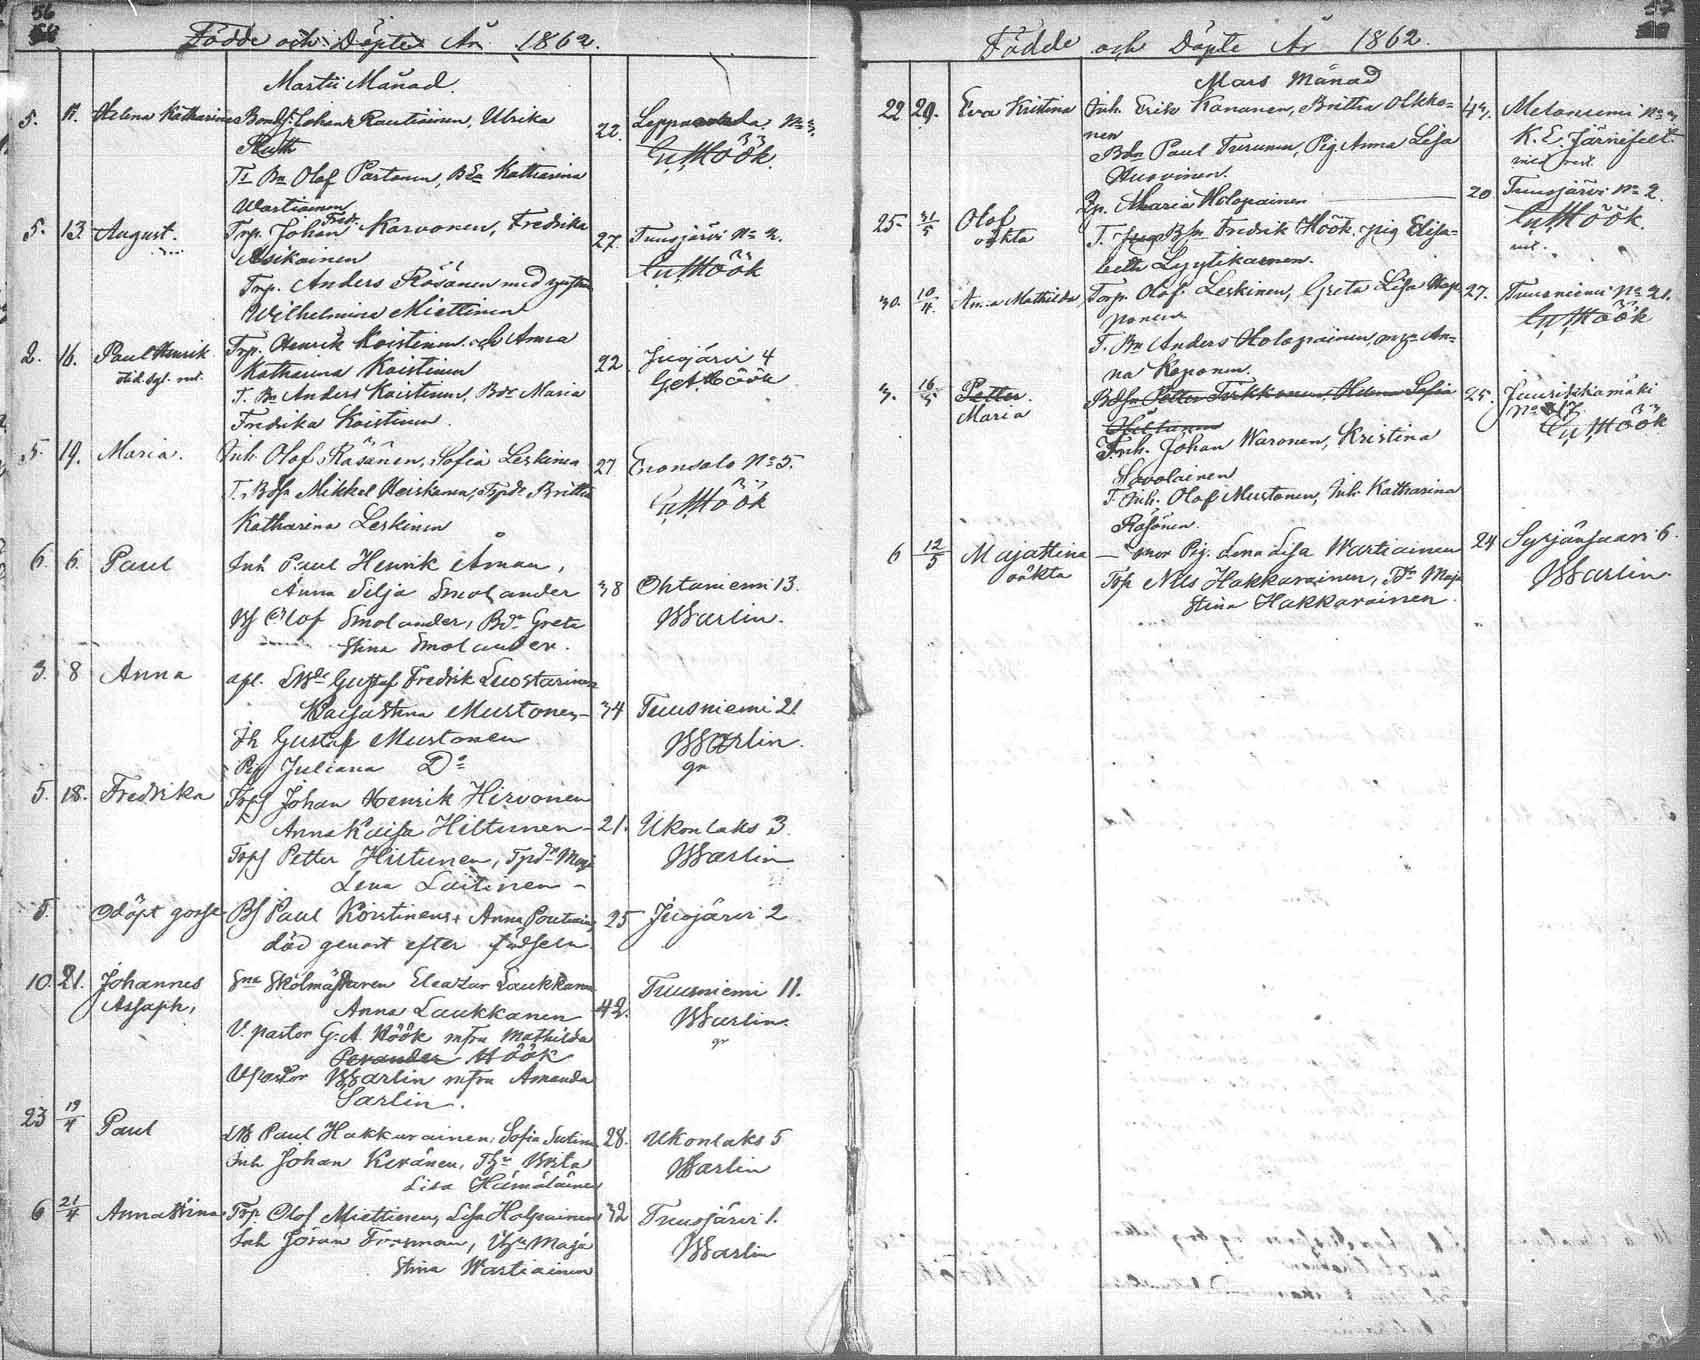 56
Födde och Döpte År 1862.
Martii Månad.
5. 11. Helena Katharina Johan Rautiainen, Ulrika 22. No 3.
Huth G A Höök.
Tr Bn Olof Partanen, Bda Katharina
Wartiainen
5. 13. August. Torp. Johan Fredr. Karvonen, Fredrika 27. Tuusjärvi No 2.
Asikainen G A Höök
Torp. Anders Räsänen med hustru
Wilhelmina Miettinen
2. 16. Paul Henrik Torp. Henrik Koistinen och Anna 22 Juojärvi 4
Katharina Koistinen G A Höök
T. Bn Anders Koistinen, Bda Maria
Fredrika Koistinen.
5. 19. Maria. Inh. Olof Räsänen, Sofia Leskinen 27 Enonsalo No 5.
T. Bdsn Mikkel Heiskanen, Tpdr Britta G A Höök
Katharina Leskinen
6. 6. Paul Inh Paul Henrik Åman,
Anna Silja Smolander 38 Ohtaniemi 13.
Bf Olof Smolander, Bdr Greta W Sarlin.
Stina Smolander.
3. 8 Anna Gustaf Fredrik Luostarinen
Kaisa Stina Mustonen 34 Tuusniemi 21
Ih Gustaf Mustonen W Sarlin.
Pig Juliana Do gr
5. 18. Fredrika Torp Johan Henrik Hirvonen
Anna Kaisa Hiltunen 21. Ukonlaks 3.
Torp Petter Hiltunen, Tpdr Maja W Sarlin
Lena Laitinen
5. Odöpt gosse Bf Paul Koistinen, Anna 25 Juojärvi 2
död genast efter födseln
10. 21. Johannes Skolmästaren Eleazar Laukkanen Tuusniemi 11.
Assaph, Anna Laukkanen 42. W Sarlin.
V. pastor G. A. Höök m fru Mathilda gr
Höök
V pastor W Sarlin m fru Amanda
Sarlin.
23 19/4 Paul Paul Hakkarainen, Sofia Sutinen 28. Ukonlaks 5
Inh Johan Keränen, Britta W Sarlin
Lisa Hämäläinen
6 21/4 Anna Stina Torp. Olof Miettinen, Lisa Holopainen 32 Tuusjärvi 1.
Inh Jöran Forsman, Maja W Sarlin
Stina Wartiainen
57
Födde och Döpte År 1862.
Mars Månad
22 29. Eva Kristina Inh. Erik Kananen, Britta Olkko= 43. Melaniemi No 3
nen K. E. Järnefelt.
Bdn Paul Turunen, Pig Anna Lisa
Husvinen.
25. 31/5 Olof Pp. Maria Holopainen 20 Tuusjärvi No 2.
oäkta T. Bsn Fredrik Höök, pig Elisa= G A Höök.
beth Lyytikäinen.
30. 10/4 Anna Mathilda Torp. Olof Leskinen, Greta Lisa Hap 27. Tuusniemi No 21.
ponen G A Höök
T. Bn Anders Holopainen, An=
na Koponen.
3. 16/5 Petter. Bdsn Petter Tirkkonen, Helena Sofia 25. Juurikkamäki
Maria Hiltunen No 17
Inh. Johan Waronen, Kristina G A Höök
Savolainen
T. Inh. Olof Mustonen, Inh. Katharina
Räsänen.
6 12/5 Maja Stina — mor Pig. Lena Lisa Wartiainen 24 Syrjänsaari 6.
oäkta Torp Nils Hakkarainen, Maja W Sarlin.
Stina Hakkarainen.